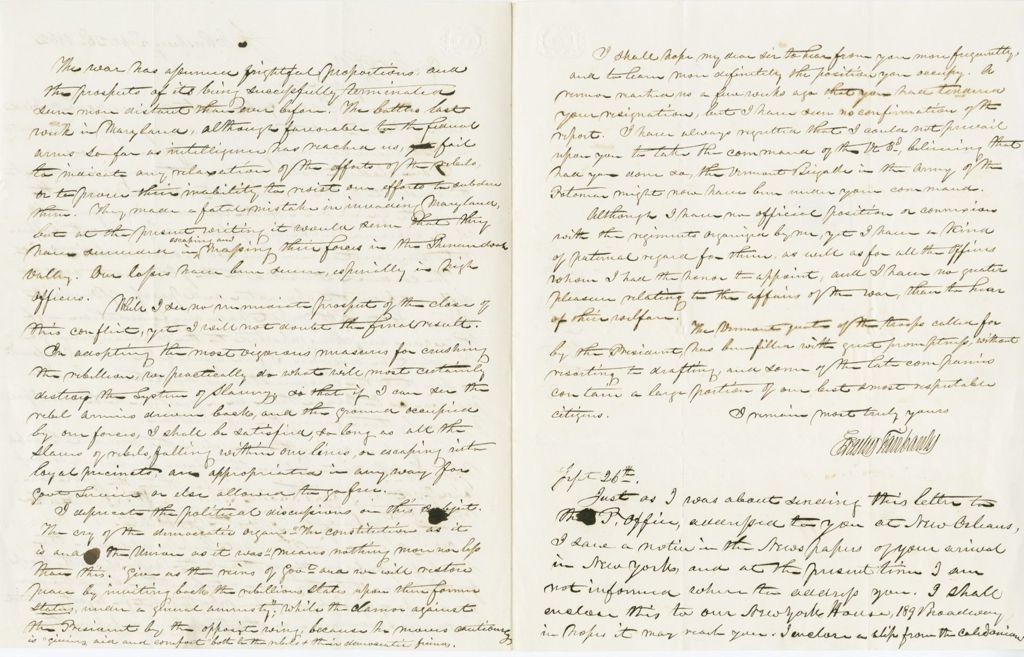 The war has assumed frightful proportions, and
the prospects of its being successfully terminated
seem more distant than ever before. The battles last
week in Maryland, although favorable to the federal
arms so far as intelligence has reached us, fail
to indicate any relaxation of the efforts of the Rebels,
or to prove their inability to resist our efforts to subdue
them. They made a fatal mistake in invading Maryland,
but at the present writing it would seem that they
have succeeded in escaping and massing their forces in the Shenandoah
Valley. Our losses have been severe, especially in high
officers. While I see no immediate prospect of the close of
this conflict, yet I will not doubt the final result.
In adopting the most vigorous measures for crushing
the rebellion, we practically do what will most certainly
destroy the system of Slavery, so that if I can see the
rebel armies driven back, and the ground occupied
by our forces, I shall be satisfied, so long as all the
slaves of rebels, falling within our lines, or escaping into
loyal precincts are appropriated in any way for
Govt Service or else allowed to go free.
I deprecate the political discussions on this subject.
The cry of the democratic organs "The constitution as it
is and the Union as it was" means nothing more nor less
than this. "Give us the reins of Govt and we will restore
peace by inviting back the rebellious States upon their former
status, under a general amnesty"; while the clamor against
the President by the opposite wing, because he moves cautiously
is "giving aid and comfort both to the rebels & their democratic friends.
I shall hope my dear sir to hear from you more frequently
and to learn more definitely the position you occupy. A
rumor reached us a few weeks ago that you had tendered
your resignation, but I have seen no confirmation of the
report. I have always regretted that I could not prevail
upon you to take the command of the Vt 3d, believing that
had you done so, the Vermont Brigade in the Army of the
Potomac might now have been under your command.
Although I have no official position or connexion
with the regiments organized by me, yet I have a kind
of paternal regard for them, as well as for all the officers
whom I had the honor to appoint, and I have no greater
pleasure relating to the affairs of the war, than to hear
of their welfare. The Vermont quota of the troops called for
by the President, has been filled with great promptness, without
resorting to drafting, and some of the late companies
contain a large portion of our best & most reputable
citizens. I remain most truly yours
Erastus Fairbanks
Sept 26th.
Just as I was about sending this letter to
the P. Office, addressed to you at New Orleans,
I saw a notice in the News papers of your arrival
in New York, and at the present time I am
not informed where to address you. I shall
enclose this to our New York House, 189 Broadway
in hopes it may reach you. I enclose a slip from the Caledonian